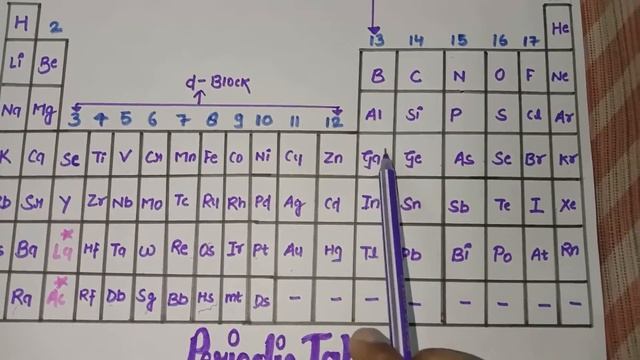 H 2 He
13 14 15 16 17
Li Be B C N O F Ne
d-Block
Na Mg 3 4 5 6 7 8 9 10 11 12 Al Si P S Cl Ar
K Ca Se Ti V Cr Mn Fe Co Ni Cy Zn Ga Ge As Se Br Kr
Rb Sr Y Zr Nb Mo Tc Ru Rh Pd Ag Cd In Sn Sb Te I Xe
s Ba La* Hf Ta W Re Os Ir Pt Au Hg Tl Pb Bi Po At Rn
Ra Ac* Rf Db Sg Bb Hs mt Ds - - - - - - - - -
Periodic Tab